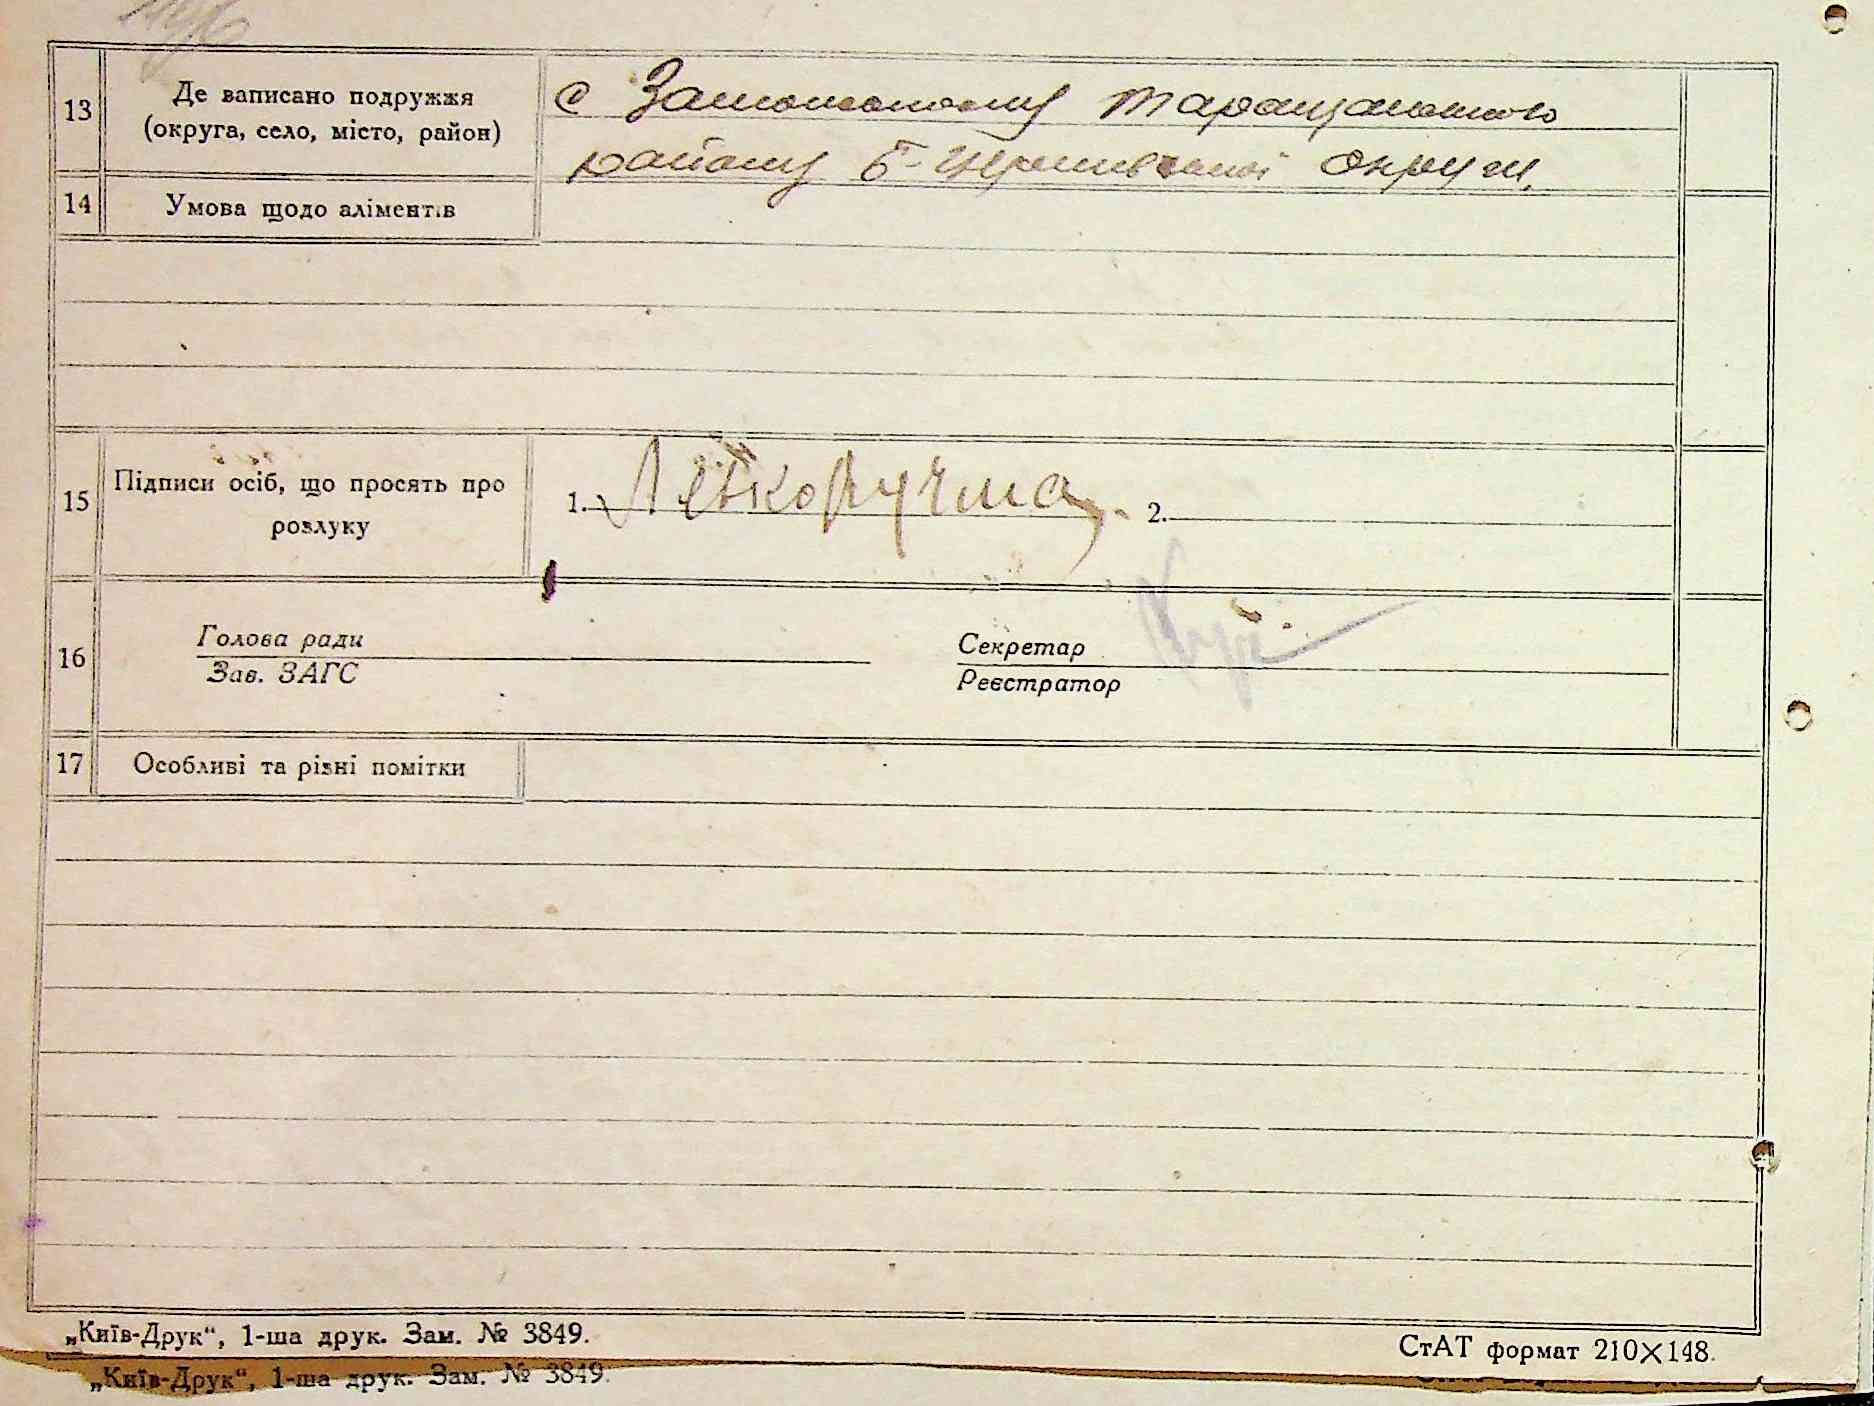 13
Де записано подружжя
(округа, село, місто, район)
с Таращанського
району Б-Церківської округи,
14
Умова щодо аліментів
15
Підписи осіб, що просять про
розлуку
1. Легкоручма. 2.
16
Голова ради
Зав. ЗАГС
Секретар
Реєстратор
17
Особливі та різні помітки
„Київ-Друк“, 1-ша друк. Зам. № 3849.
СтАТ формат 210×148.
„Київ-Друк“, 1-ша друк. Зам. № 3849.